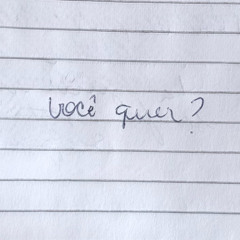 você quer?